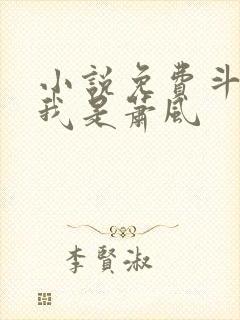 小說免費斗
我是蕭風
李賢淑